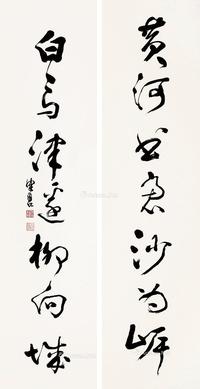 黄河出塞沙为岸
白马津边柳向城